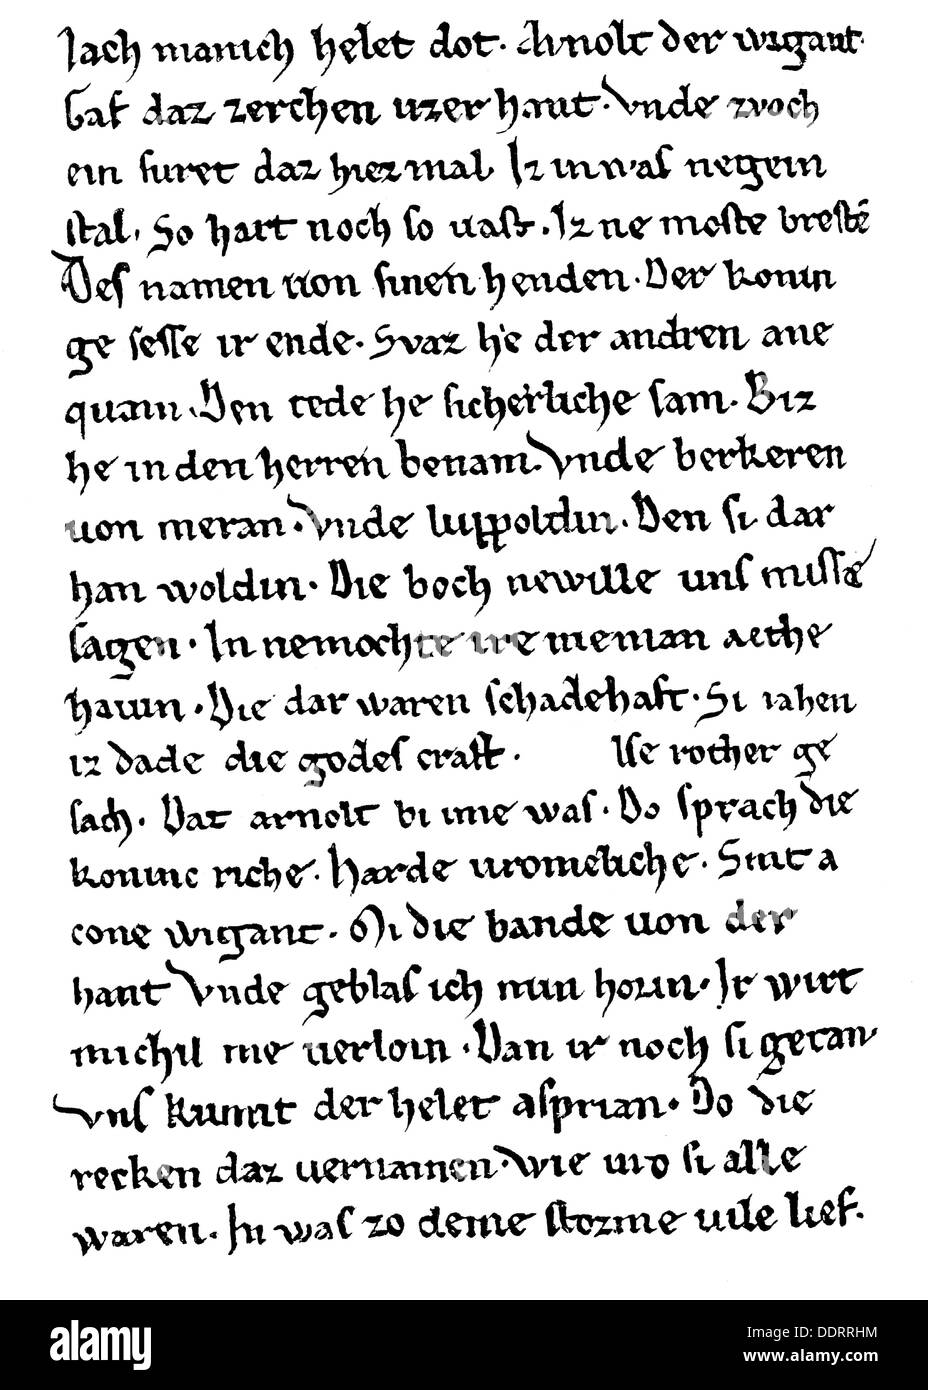 lach manich helet dot. Arnolt der wigant.
Gaf daz zerchen uzer hant. Vnde zvoch
ein suret daz hiez mal. Iz inwas negein
stal. So hart noch so uast. Iz ne moste brestē
Des namen uon sinen henden. Der konin
ge sesse ir ende. Svaz he der andren ane
quam. Den tede he sicherliche sam. Biz
he in den herren benam. Vnde berkeren
uon meran. Vnde luppoldin. Den si dar
han woldin. Die boch newille uns missae
sagen. In nemochte nieman aethe
hauin. Die dar waren schadehaft. Si iahen
iz dade die godes craft. Ise rother ge
sach. Dat arnolt bi ime was. Do sprach die
koninc riche. Harde uromeliche. Snit a
cone wigant. Mi die bande uon der
hant Vnde geblas ich min horin. Ir wirt
michil me uerloin. Van ir noch si getan
Vns kumit der helet asprian. Do die
recken daz uernamen. Wie uro si alle
waren. In was zo deme storme uile lief.
alamy
Image ID: DDRRHM
www.alamy.com